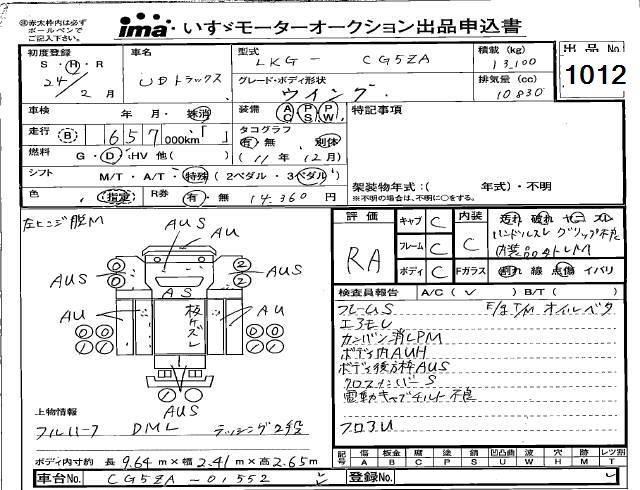 ㊟赤太枠内は必ず
ボールペンで
ご記入下さい。
ima いすゞモーターオークション出品申込書
初度登録 車名 型式 LKG - CG5ZA 積載(kg) 13,100 出品No.
S・H・R 24/2月 UDトラックス グレード・ボディ形状 ウイング 排気量(cc) 10830 1012
車検 年 月・抹消 装備 AC PS PW 特記事項
走行 B 657 000km タコグラフ 有・無 別体
燃料 G・D・HV 他( ) (11年12月)
シフト M/T・A/T・特殊(2ペダル・3ペダル) 架装物年式:( 年式)・不明
※不明の場合は、不明に○をする。
色 (指定) R券 有・無 14,360円
左ヒンジ脱M
評価 RA キャブ C 内装 C
フレーム C
ボディ C Fガラス 割れ 線 点傷 イバリ
汚れ 破れ ヤニ スレ
ハンドルスレ グリップ不良
内装品外レM
AUS AU
0 0 2 2
AUS AUS
AS
AU 板ゲズレ AU
0 0 0 0
1 1 1 1
AUS
検査員報告 A/C( V ) B/T( )
フレームS E/g T/M オイルベタ
エアモレ
カンバン消しPM
ボディ内AUH
ボディ後方枠AUS
クロスメンバーS
電動キャブチルト不良
フロアU
上物情報
フルハーフ DML ラッシング2段
ボディ内寸約 長 9.64m×幅 2.41m×高 2.65m
記号 傷 A 板金 B 腐 C 塗 P 錆 S 凹凸曲 U 波 W 穴 H 跡 M レツ割 T
車台No. CG5ZA-01552 登録No.